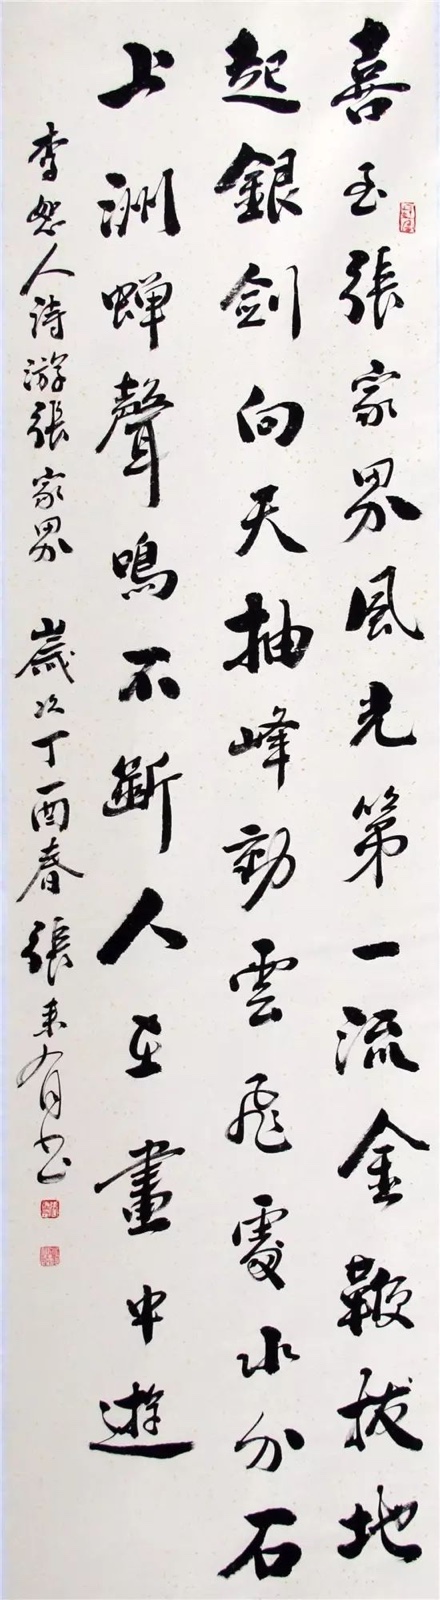 喜至張家界風光第一流金鞭拔地
起銀劍向天抽峰動雲飛處水分石
上洲蟬聲鳴不斷人在畫中遊
李　人詩游張家界　歲次丁酉春張来有书